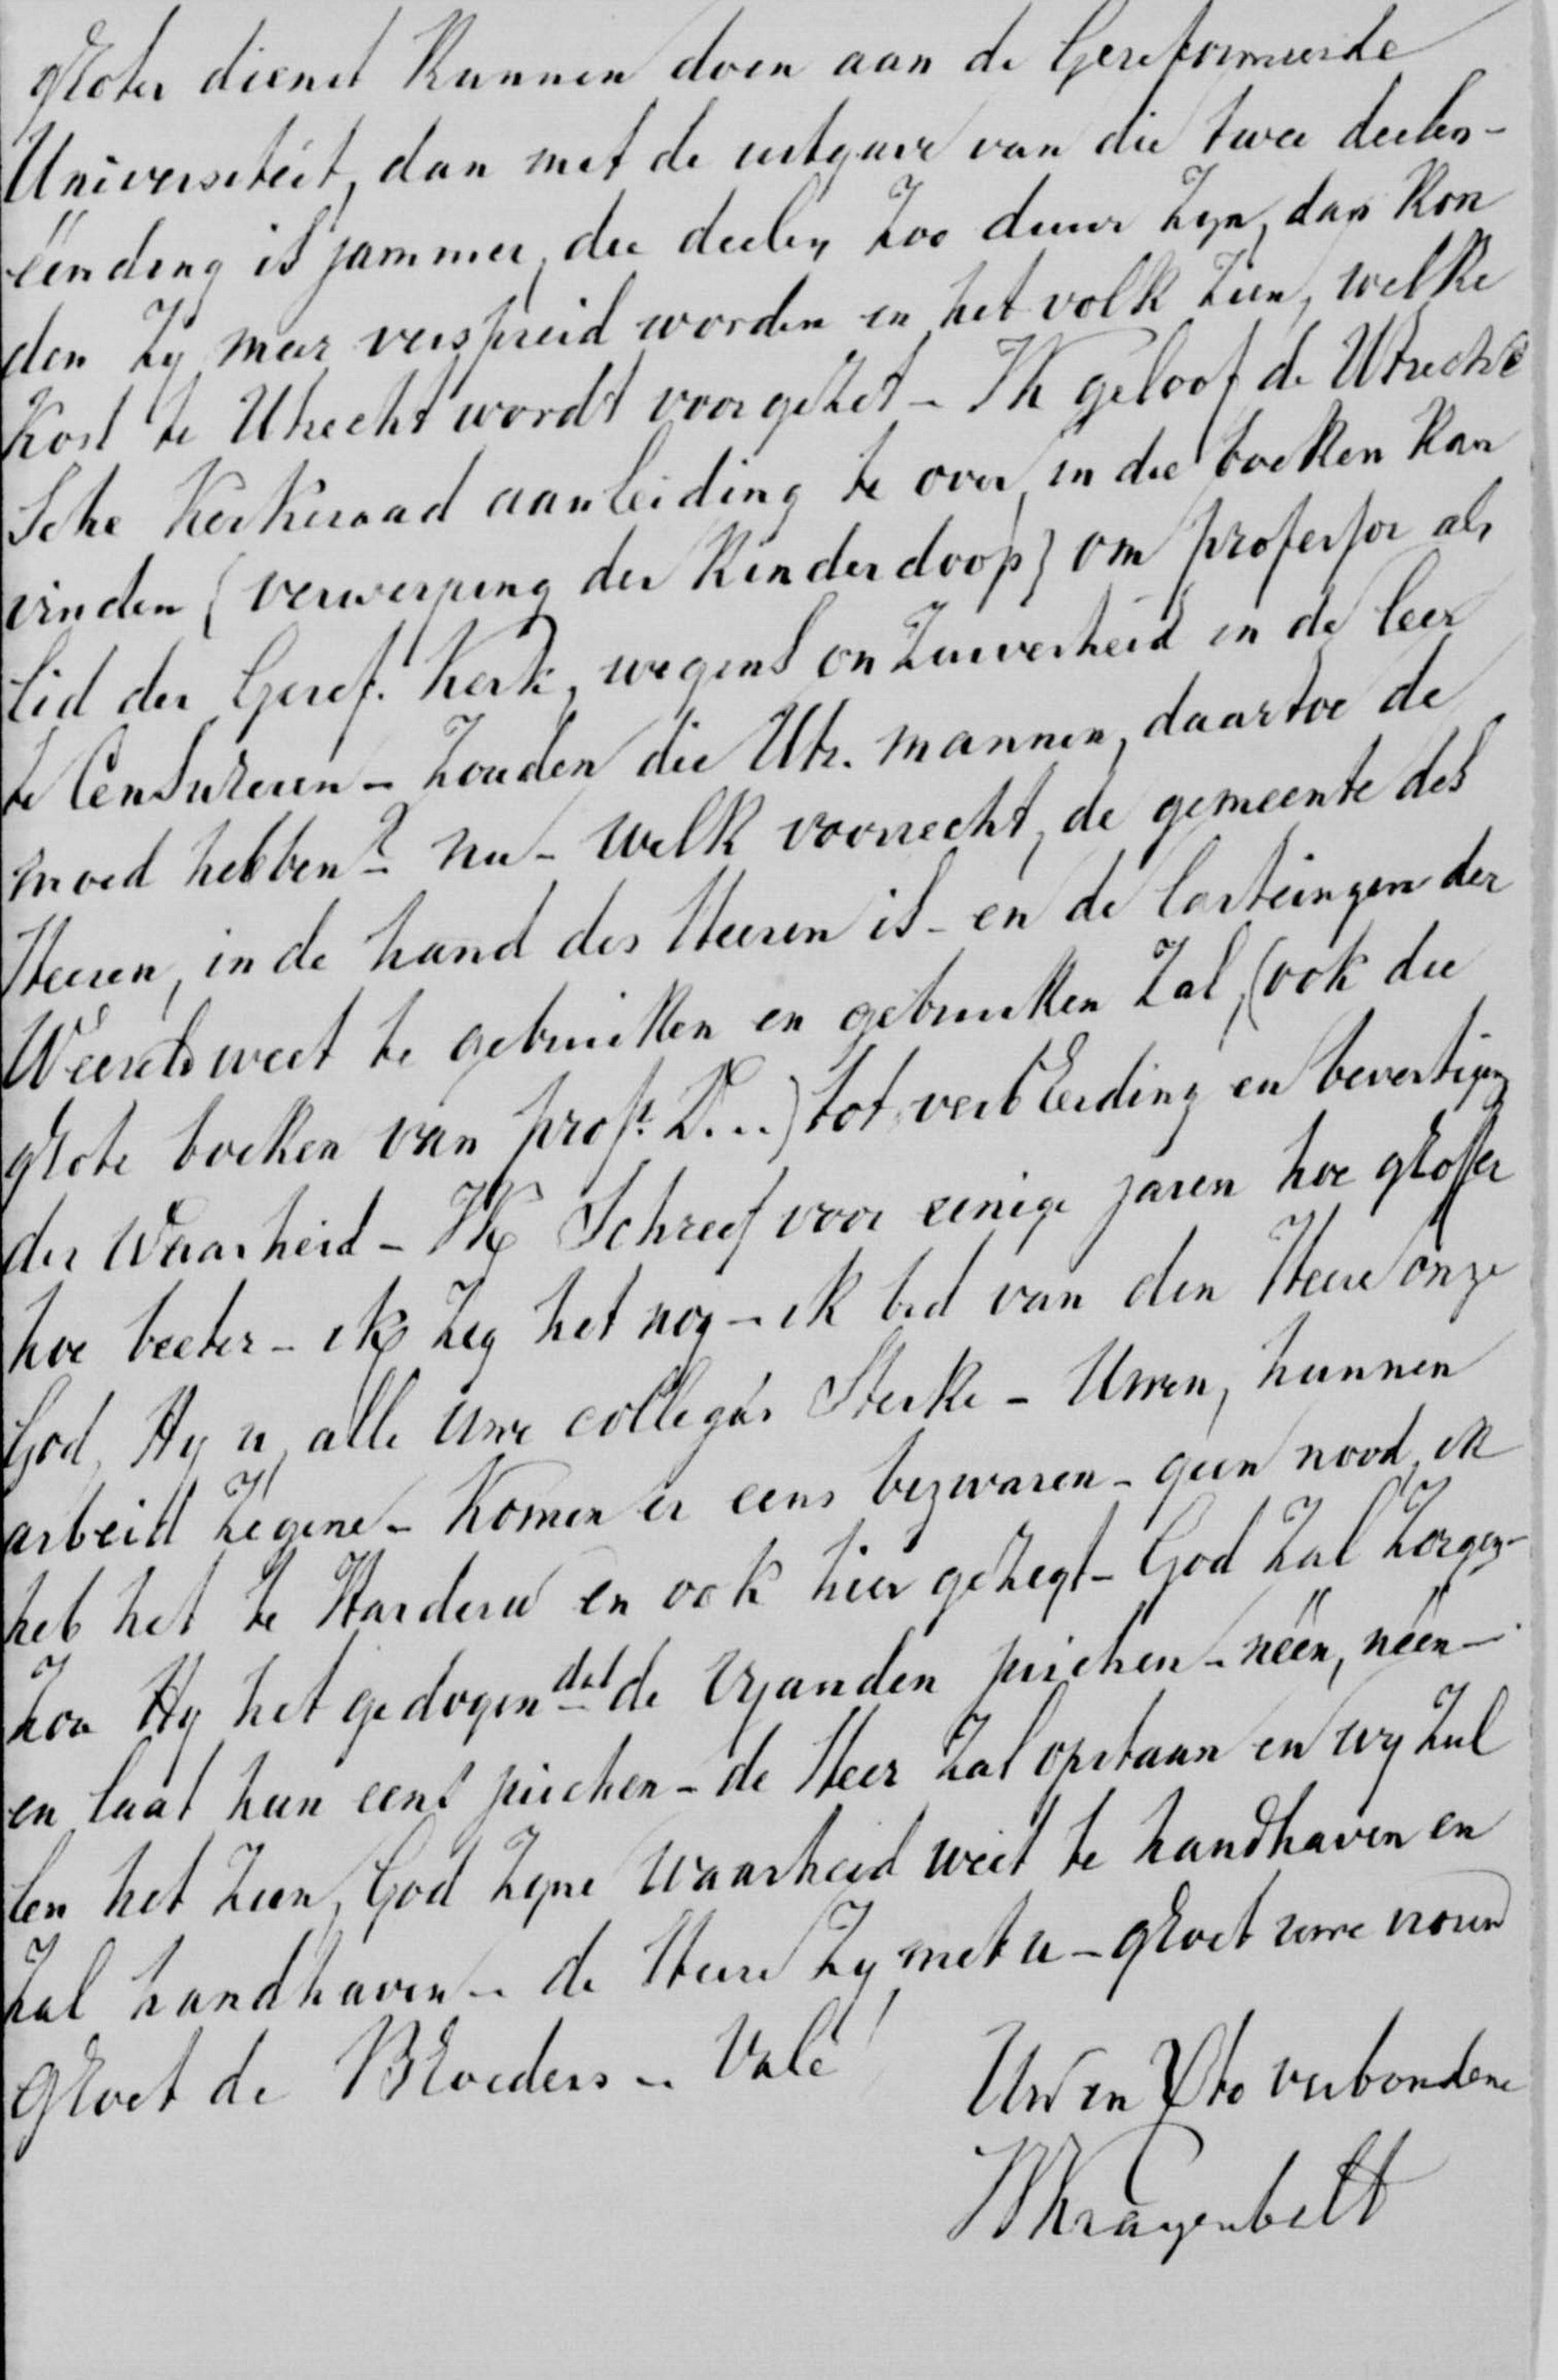 groter dienst kunnen doen aan de Gereformeerde
Universiteit, dan met de uitgave van die twee deelen –
één ding is jammer, die deelen zoo duur zyn, dan kon
den zy meer verspreid worden en het volk zien, welke
kost te Utrecht wordt voorgezet – Ik geloof de Utrecht
sche kerkeraad aanleiding te over, in die boeken kan
vinden (verwerping der kinderdoop) om professor als
lid der Geref. Kerk, wegens onzuiverheid in de leer
te censureren – zouden die Utr. mannen, daartoe de
moed hebben? nu – welk voorrecht, de gemeente des
Heeren, in de hand des Heeren is – en de lasteringen der
Weereld weet te gebruiken en gebruiken zal, (ook die
grote boeken van profr. D...) tot verbreiding en bevestiging
der Waarheid – Ik schreef voor eenige jaren hoe groffer
hoe beeter – ik zeg het nog – ik bid van den Heere onze
God, Hy u, alle uwe collega's sterke – Uwen, hunnen
arbeid zegene – komen er eens bezwaren – geen nood, ik
heb het te Harderw en ook hier gezegt – God zal zorgen –
zou Hy het gedogen dat de Vyanden juichen – néén, néén –
en laat hun eens juichen – de Heer zal opstaan en wy zul
len het zien, God zyne Waarheid weet te handhaven en
zal handhaven – de Heere zy met u – groet uwe vrouw
groet de Broeders – Vale!
Uw in Xto verbondene
WKragenbelt